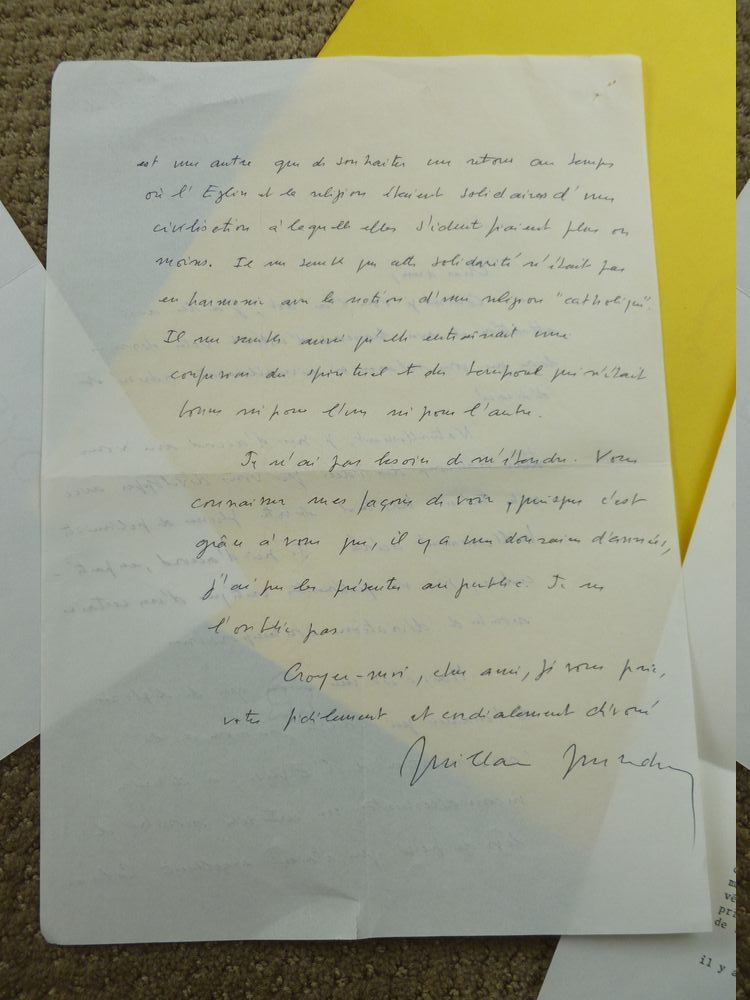 est une autre que de souhaiter un retour au temps
où l'Eglise et la religion étaient solidaires d'une
civilisation à laquelle elles s'identifiaient plus ou
moins. Il me semble que cette solidarité n'était pas
en harmonie avec la notion d'une religion "catholique".
Il me semble aussi qu'elle entraînait une
confusion du spirituel et du temporel qui n'était
bonne ni pour l'un ni pour l'autre.
Je n'ai pas besoin de m'étendre. Vous
connaissez mes façons de voir, puisque c'est
grâce à vous que, il y a une douzaine d'années,
j'ai pu les présenter au public. Je ne
l'oublie pas.
Croyez-moi, cher ami, je vous prie,
votre fidèlement et cordialement dévoué
il y a